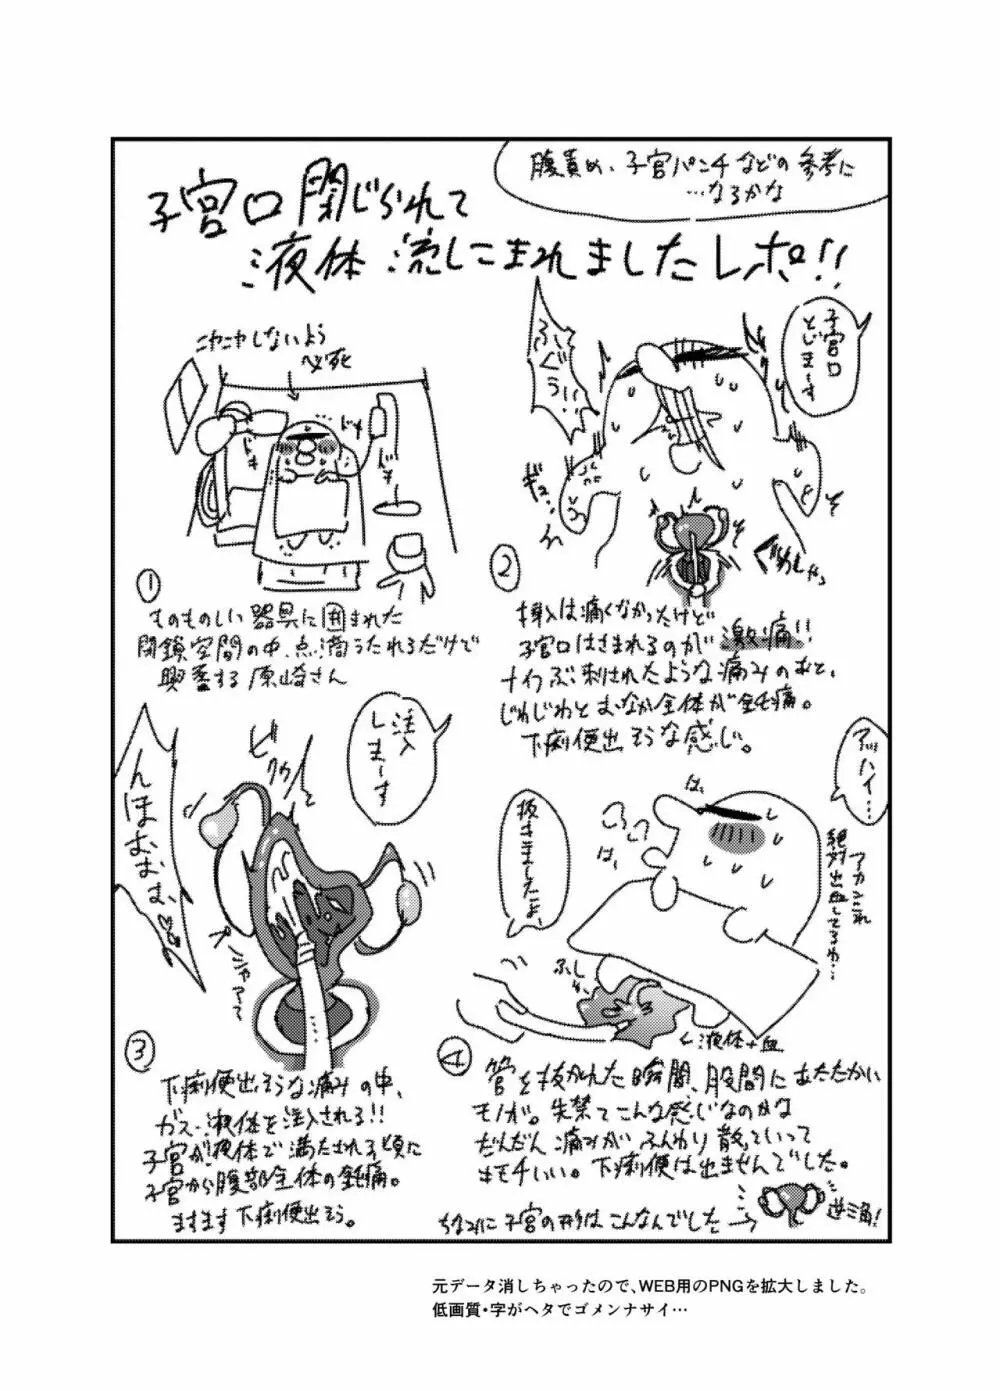 腹責め、子宮パンチなどの参考に
…なるかな
子宮口閉じられて
液体流しこまれましたレポ!!
ニヤニヤしないよう
必死
ドキ
ドキ
ドキ
①
ものものしい器具に囲まれた
閉鎖空間の中、点滴うたれるだけで
興奮する原崎さん
子宮口
とじまーす
ふぐうぅ
ギュ…
②
挿入は痛くなかったけど
子宮口はさまれるのが激痛!!
ナイフぶっ刺されたような痛みのあと、
じわじわとおなか全体が鈍痛。
下痢便出そうな感じ。
注入
しまーす
んほおおお
ビクゥ
③
下痢便出そうな痛みの中、
ガス・液体を注入される!!
子宮が液体で満たされる頃に
子宮から腹部全体の鈍痛。
ますます下痢便出そう。
アッハイ…
抜きましたよ、
アカンこれ
絶対出血してるわ…
は、
は、
←液体+血
④
管を抜かれた瞬間、股間にあたたかい
モノが。失禁てこんな感じなのかな
だんだん痛みがふんわり散っていって
キモチいい。下痢便は出ませんでした。
ちなみに子宮の形はこんなんでした→
逆三角!
元データ消しちゃったので、WEB用のPNGを拡大しました。
低画質・字がヘタでゴメンナサイ…